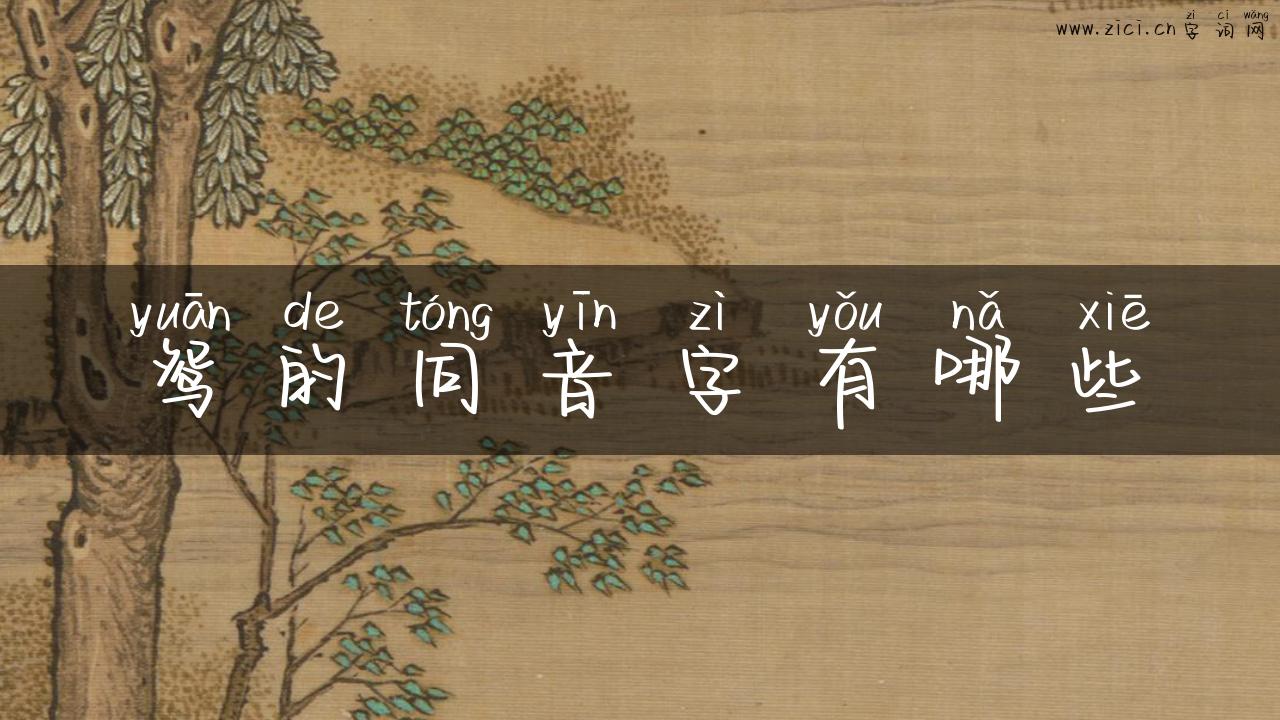 zì cí wǎng
www.zici.cn 字词网
yuān de tóng yīn zì yǒu nǎ xiē
鸳的同音字有哪些